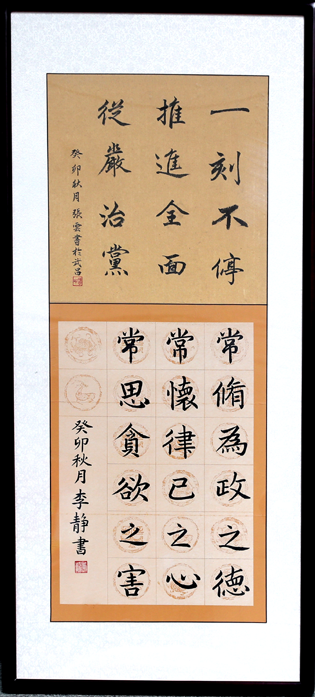 一刻不停
推進全面
從嚴治黨
癸卯秋月張雲書於武昌
常脩為政之德
常懷律己之心
常思貪欲之害
癸卯秋月李静書